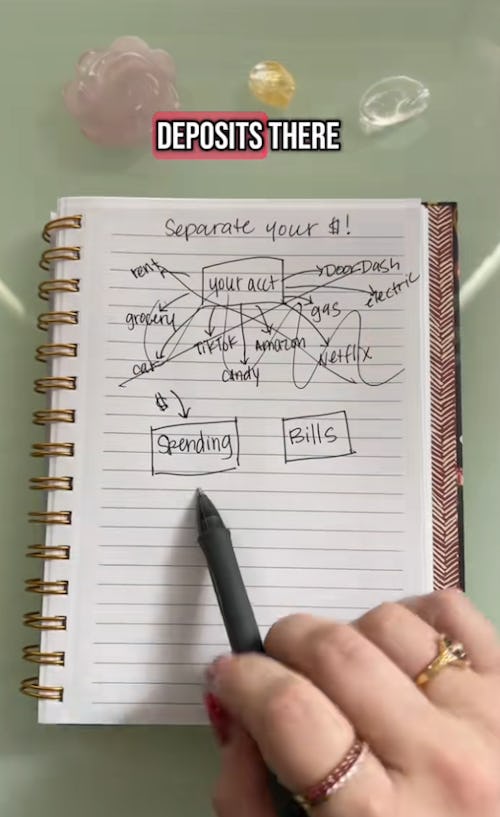 DEPOSITS THERE
Separate your $!
rent
your acct
DoorDash
electric
grocery
gas
TikTok
Amazon
Netflix
car
Candy
$
Spending
Bills